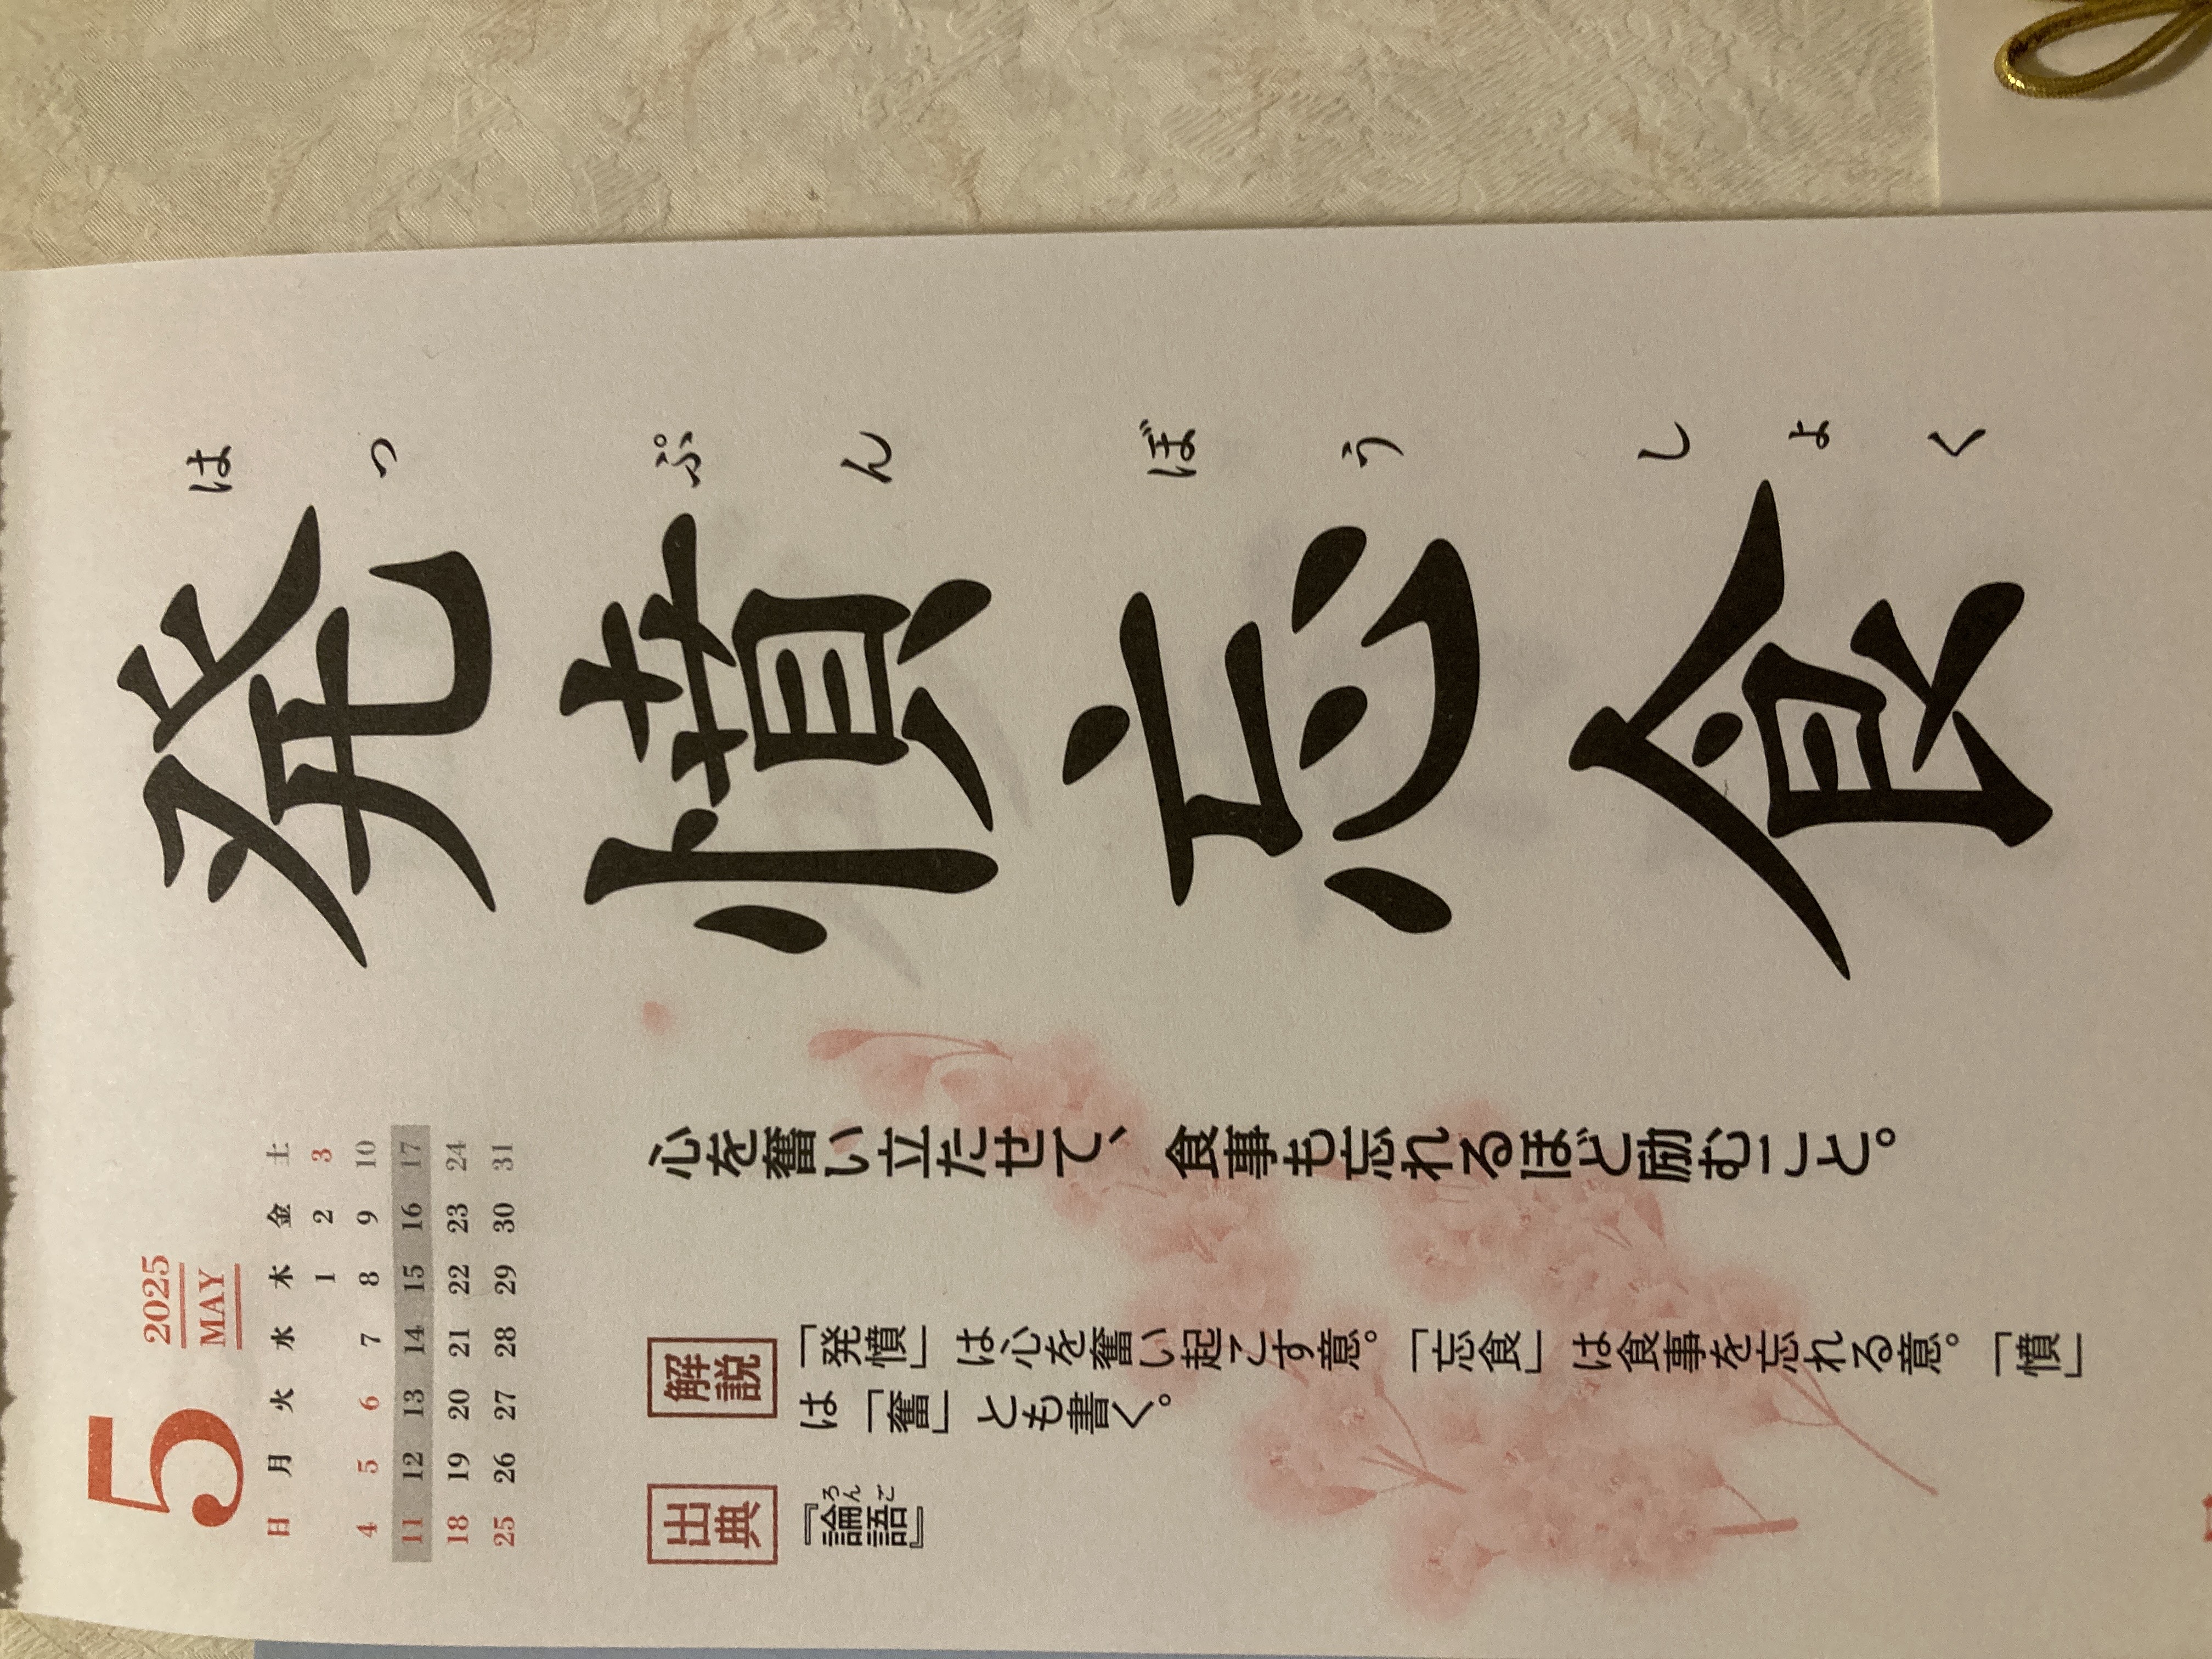 5
2025
MAY
日 月 火 水 木 金 土
1 2 3
4 5 6 7 8 9 10
11 12 13 14 15 16 17
18 19 20 21 22 23 24
25 26 27 28 29 30 31
発憤忘食
はっぷんぼうしょく
心を奮い立たせて、食事も忘れるほど励むこと。
解説
「発憤」は心を奮い起こす意。「忘食」は食事を忘れる意。「憤」
は「奮」とも書く。
出典
『論語』
ろんご